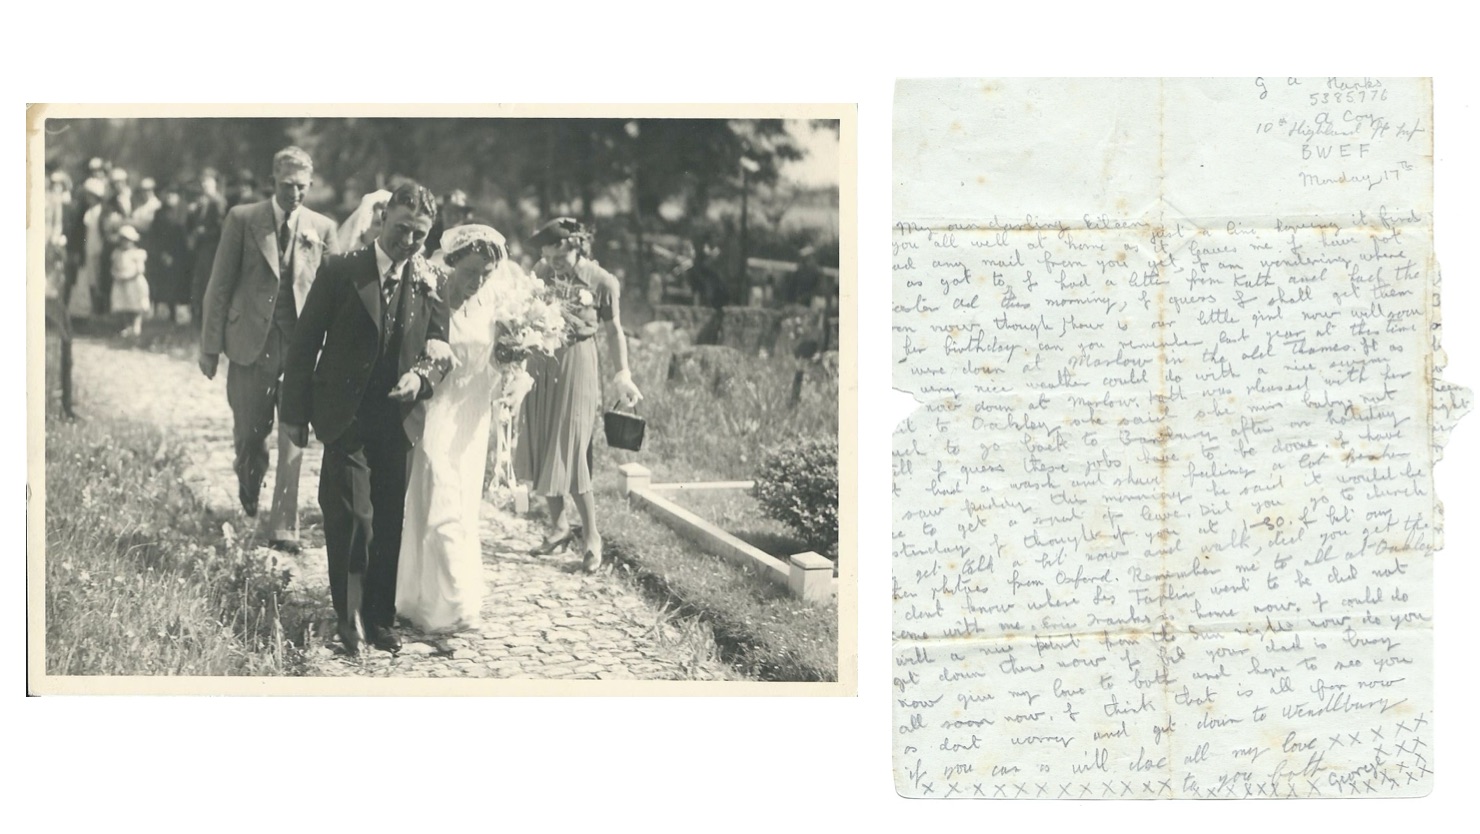 G A Hanks
5385776
A Coy
10th Highland Lt Inf
BWEF
Monday 17th
My own darling Eileen, just a line hoping it finds
you all well at home as it leaves me I have not
had any mail from you yet, I am wondering where
as got to, I had a letter from Kath and Jack the
this morning, I guess I shall get them
now, though, how is our little girl now will soon
her birthday can you remember last year at this time
were down at Marlow on the old Thames. It as
very nice weather could do with a nice swim
now down at Marlow. Kath was pleased with her
to Oakley she said she miss baby, not
much to go back to Banbury after on holiday
I guess these jobs have to be done. I have
had a wash and shave feeling a lot fresher
saw paddy this morning he said it would be
to get a spot of leave. Did you go to church
yesterday, I thought of you at 1-30. I bet our
get talk a bit now and walk, did you get the
photos from Oxford. Remember me to all at Oakley
dont know where Les Taplin went to he did not
come with me. Eric Franks is home now. I could do
with a nice point from the Sun right now, do you
get down there now I bet your dad is busy
now give my love to both and hope to see you
all soon now. I think that is all for now
so dont worry and get down to Wendlbury
if you can so will close all my love x x x x x
x x x x x x x x x x x to you both George